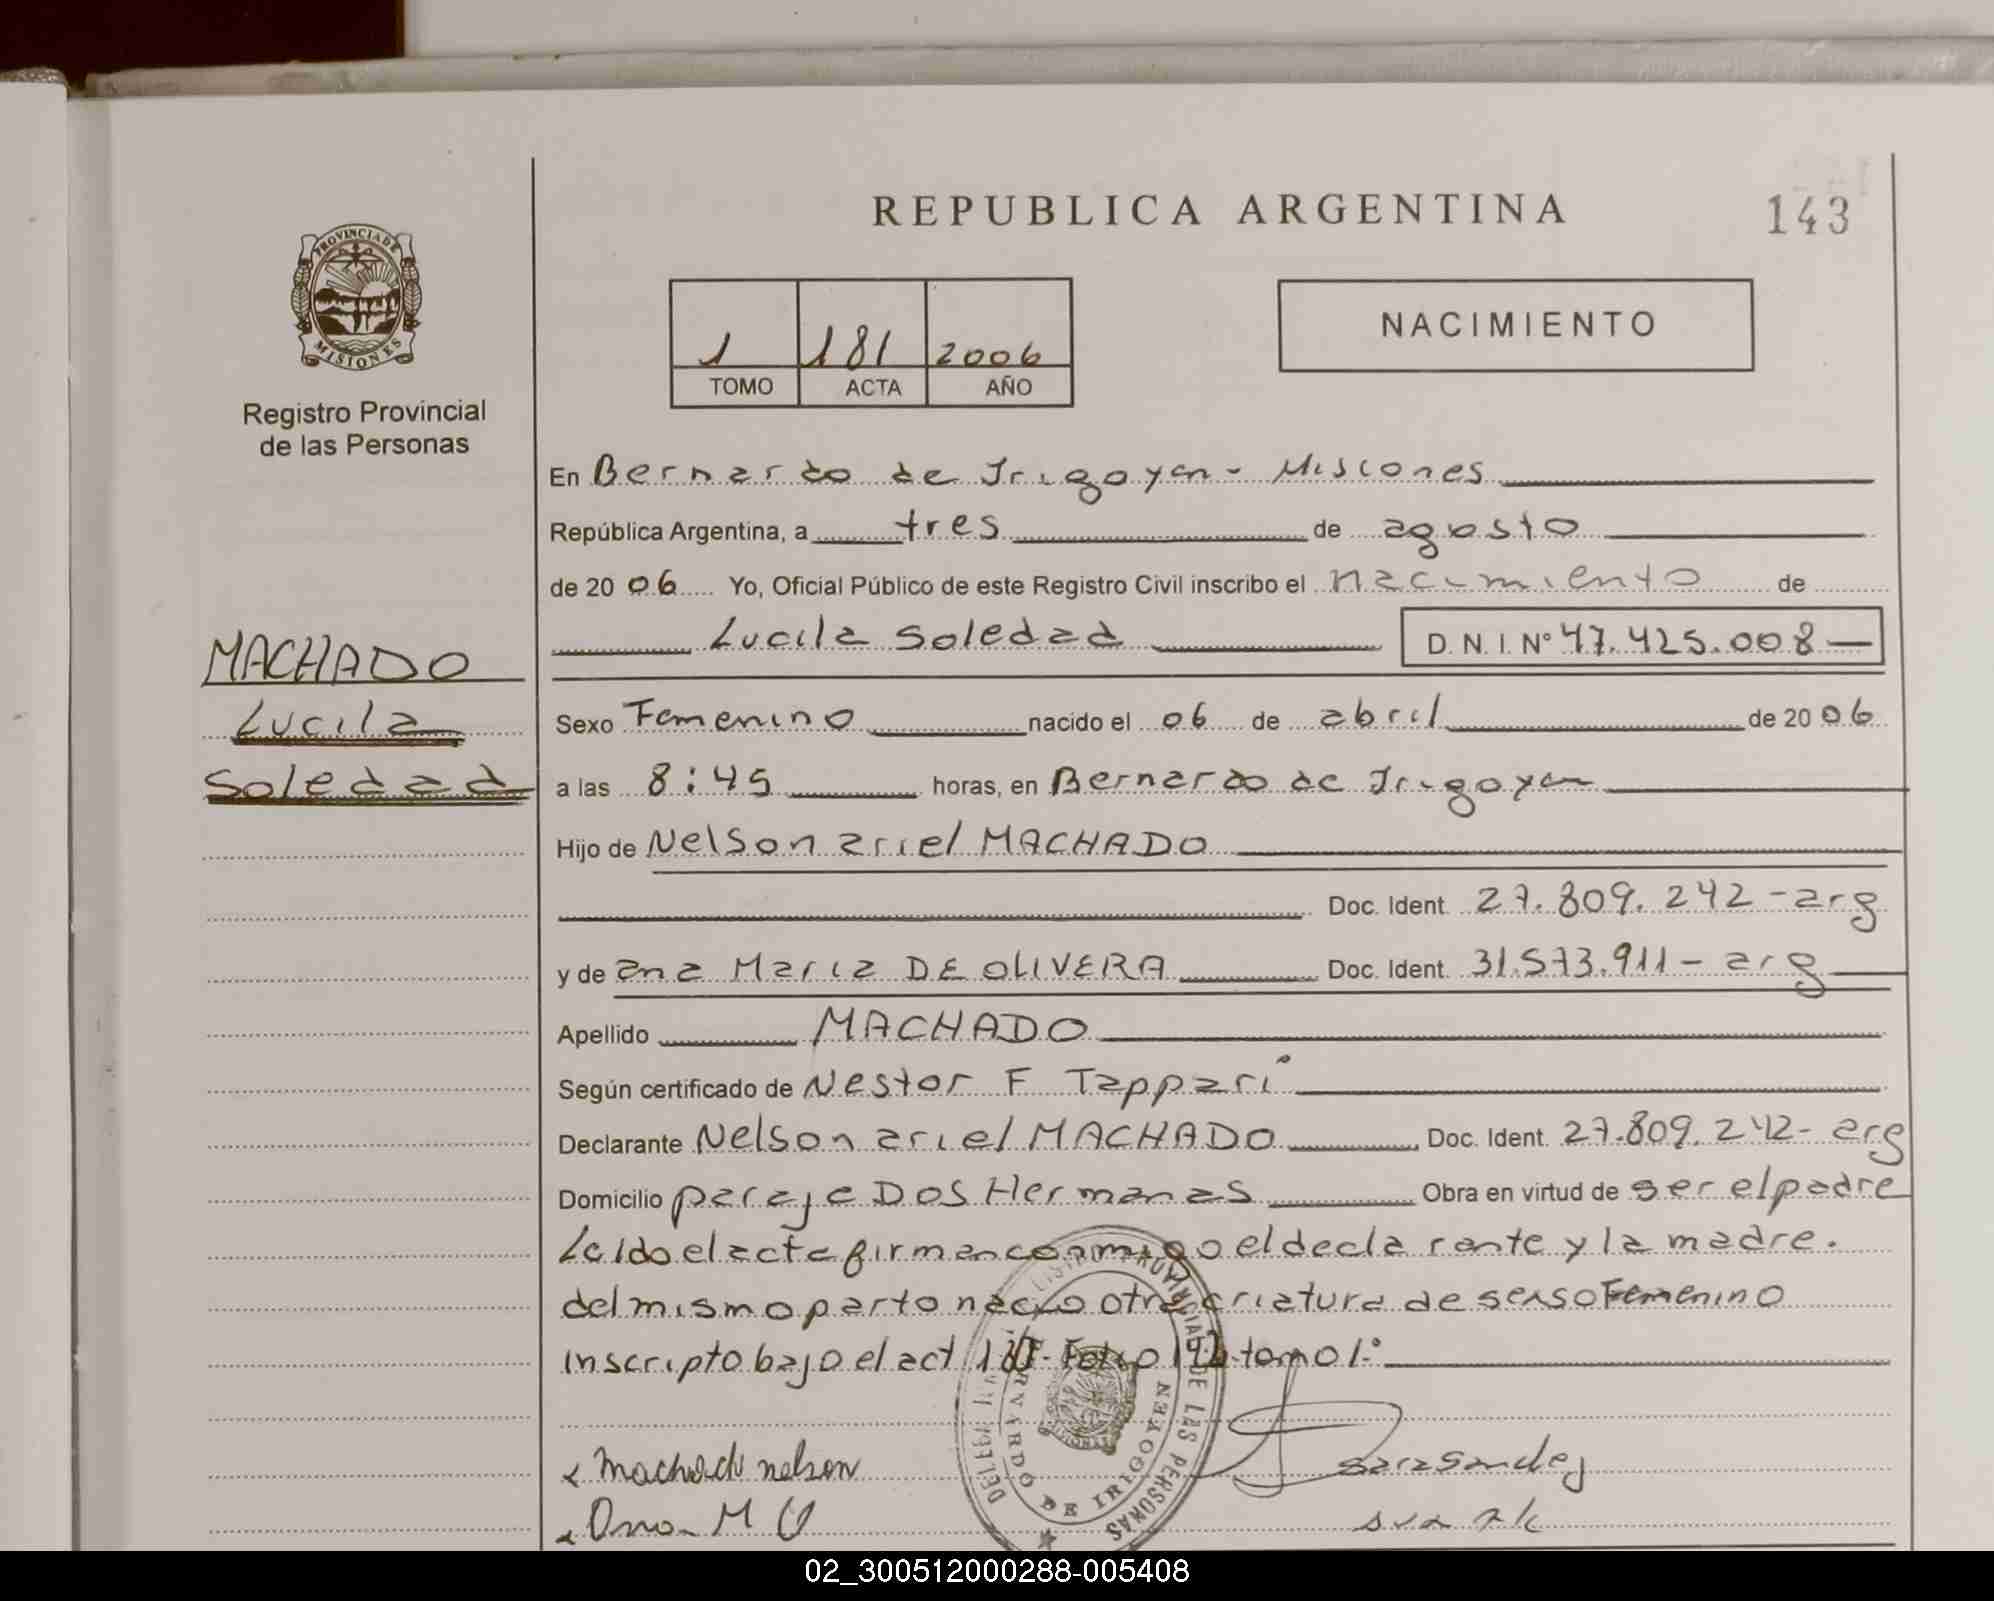 REPUBLICA ARGENTINA
143
PROVINCIA DE
MISIONES
Registro Provincial
de las Personas
1 181 2006
TOMO ACTA AÑO
NACIMIENTO
En Bernardo de Irigoyen - Misiones
República Argentina, a tres de agosto
de 20 06 Yo, Oficial Público de este Registro Civil inscribo el nacimiento de
Lucila Soledad D. N. I. Nº 47.425.008
MACHADO
Lucila
Soledad
Sexo Femenino nacido el 06 de abril de 20 06
a las 8:45 horas, en Bernardo de Irigoyen
Hijo de Nelson ariel MACHADO
Doc. Ident. 27.809.242 - arg
y de ana Maria DE OLIVERA Doc. Ident. 31.573.911 - arg
Apellido MACHADO
Según certificado de Nestor F Tappari
Declarante Nelson ariel MACHADO Doc. Ident. 27.809.242 - arg
Domicilio paraje DOS Hermanas Obra en virtud de ser el padre
Leido el acta firman conmigo el declarante y la madre.
del mismo parto nacio otra criatura de sexso Femenino
inscripto bajo el act Folio tomo 1º
Machado nelson
Ana M O
REGISTRO PROVINCIAL DE LAS PERSONAS
BERNARDO DE IRIGOYEN
02_300512000288-005408